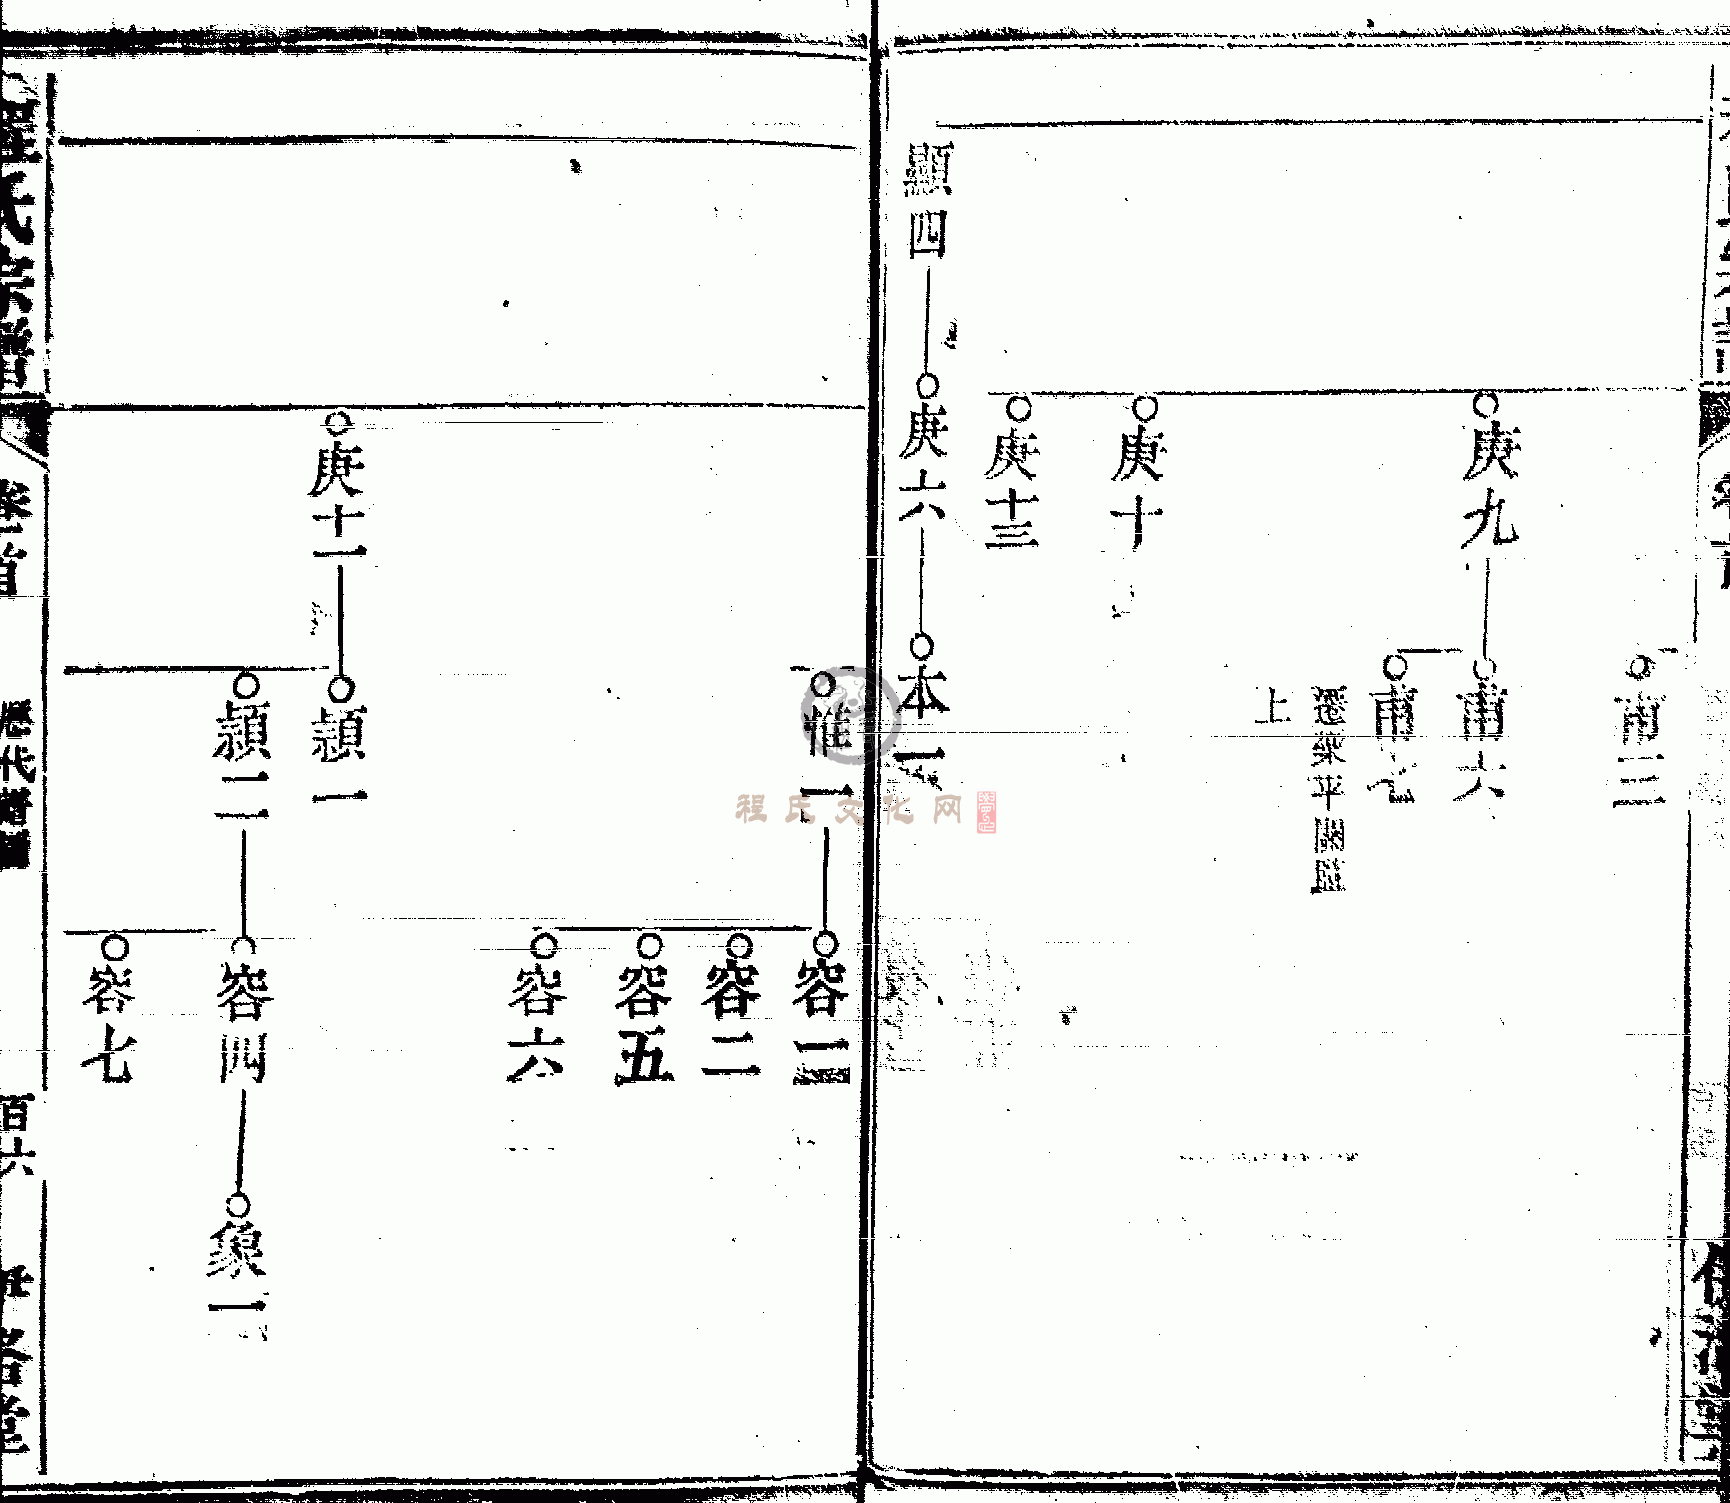 甫三
庚九
甫六
甫七
遷柴平關陞
上
庚十
庚十三
顯四
庚六
本一
惟一
容一
容二
容五
容六
庚十一
頴一
頴二
容四
象一
容七
氏宗譜
卷首
歷代譜圖
百六
程氏文化网